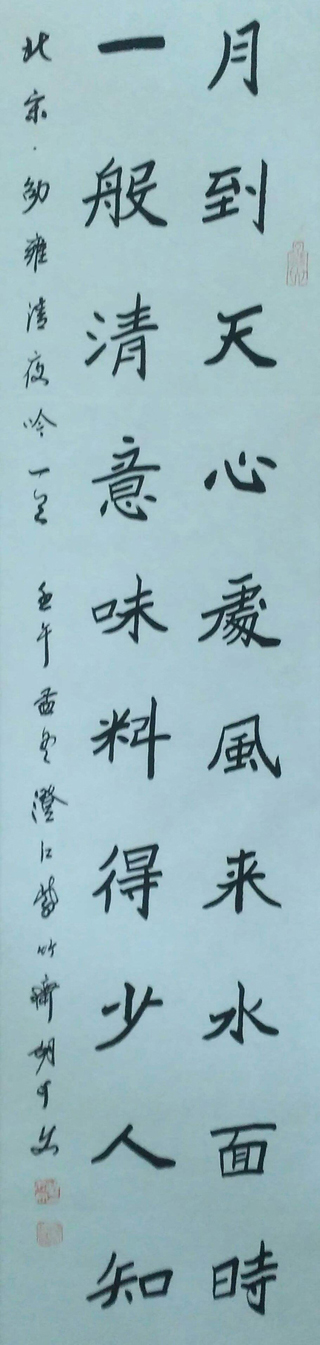 月到天心處風来水面時
一般清意味料得少人知
北宋·邵雍清夜吟一首 壬午孟冬澄江紫竹齋胡